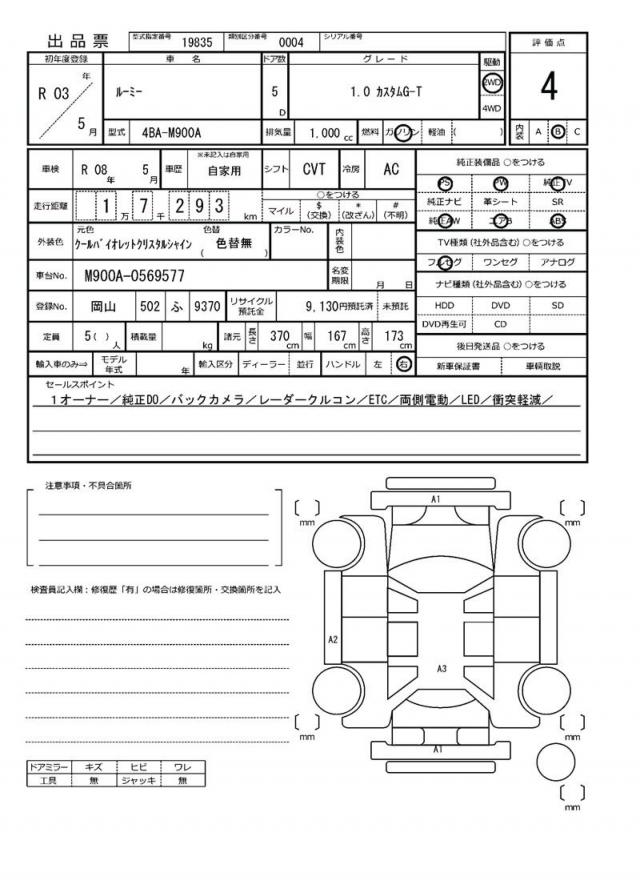 出品票 型式指定番号 19835 類別区分番号 0004 シリアル番号
評価点
4
内装 A B C
初年度登録 車名 ドア数 グレード 駆動
R 03 年 5 月 ルーミー 5 D 1.0 カスタムG-T 2WD 4WD
型式 4BA-M900A 排気量 1.000 cc 燃料 ガソリン 軽油 ( )
車検 R 08 年 5 月 車歴 ※未記入は自家用 自家用 シフト CVT 冷房 AC
走行距離 1 万 7 千 2 9 3 km ○をつける マイル $ (交換) * (改ざん) # (不明)
外装色 元色 クールバイオレットクリスタルシャイン 色替 ( 色替無 ) カラーNo. 内装色
車台No. M900A-0569577 名変期限 月 日
登録No. 岡山 502 ふ 9370 リサイクル預託金 9,130円預託済 未預託
定員 5( ) 人 積載量 kg 諸元 長さ 370 cm 幅 167 cm 高さ 173 cm
輸入車のみ⇒ モデル年式 年 輸入区分 ディーラー 並行 ハンドル 左 右
純正装備品 ○をつける
PS PW 純正TV
純正ナビ 革シート SR
純正AW エアB ABS
TV種類(社外品含む)○をつける
フルセグ ワンセグ アナログ
ナビ種類(社外品含む)○をつける
HDD DVD SD
DVD再生可 CD
後日発送品 ○をつける
新車保証書 車輌取説
セールスポイント
1オーナー/純正DO/バックカメラ/レーダークルコン/ETC/両側電動/LED/衝突軽減/
注意事項・不具合箇所
検査員記入欄:修復歴「有」の場合は修復箇所・交換箇所を記入
ドアミラー キズ ヒビ ワレ
工具 無 ジャッキ 無
A1
mm mm
A2
A3
mm mm
A1
mm